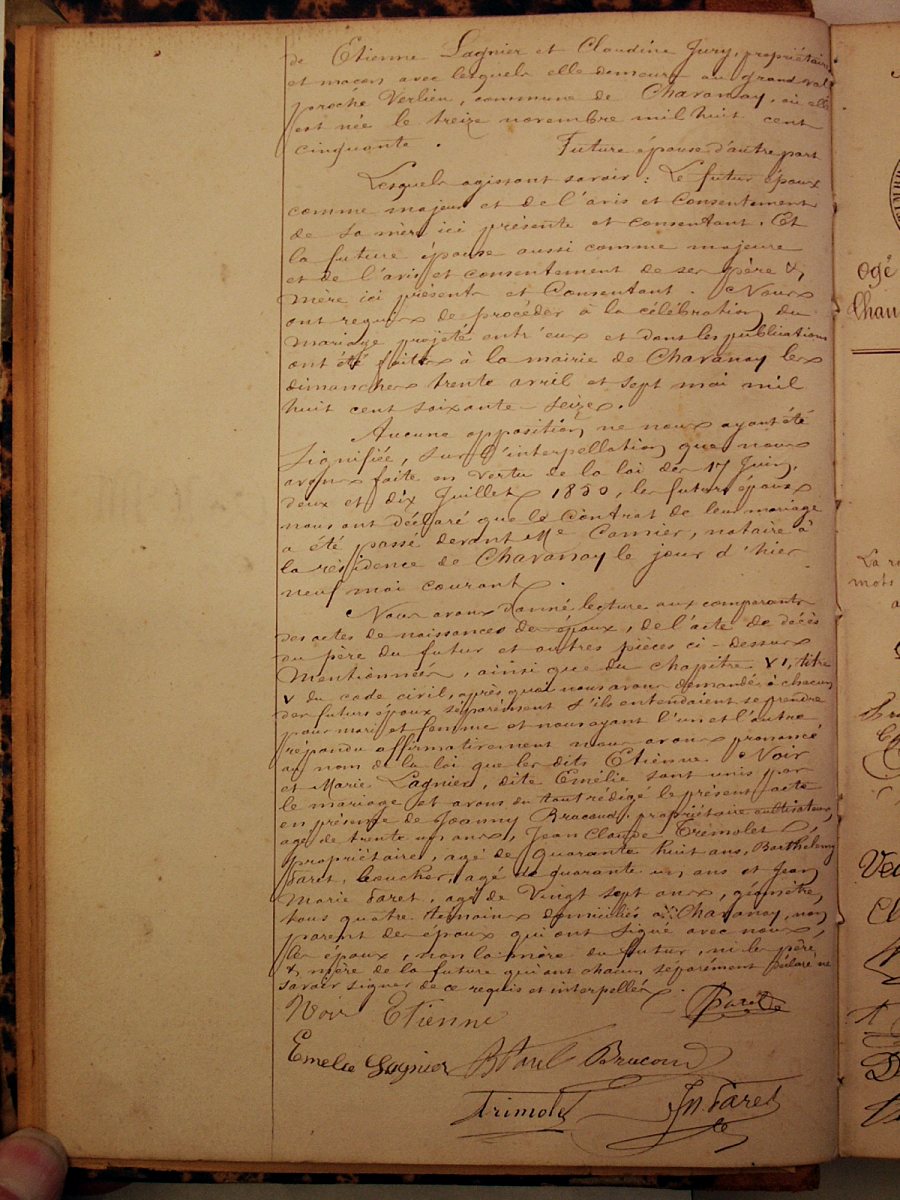 de Etienne Lagnier et Claudine Jury, propriétaire
et maçon avec lesquels elle demeure au grand val
proche Verlieu, commune de Chavanay, où elle
est née le treize novembre mil huit cent
cinquante. Future épouse d'autre part
Lesquels agissant savoir: Le futur époux
comme majeur et de l'avis et consentement
de sa mère ici présente et consentant. Et
la future épouse aussi comme majeure
et de l'avis et consentement de ses père &
mère ici présents et Consentant. Nous
ont requis de procéder à la célébration du
mariage projeté entr'eux et dont les publications
ont été faites à la mairie de Chavanay les
dimanches trente avril et sept mai mil
huit cent soixante-seize.
Aucune opposition ne nous ayant été
signifiée, sur l'interpellation que nous
avons faite en vertu de la loi des 17 Juin,
deux et dix Juillet 1850, les futurs époux
nous ont déclaré que le Contrat de leur mariage
a été passé devant Me notaire à
la résidence de Chavanay le jour d'hier
neuf mai courant.
Nous avons donné lecture aux comparants
des actes de naissances des époux, de l'acte de décès
du père du futur et autres pièces ci-dessus
Mentionnées, ainsi que du chapitre VI, titre
V du code civil, après quoi nous avons demandé à chacun
des futurs époux séparément s'ils entendaient se prendre
pour mari et femme et nous ayant l'un et l'autre
répondu affirmativement nous avons prononcé
au nom de la loi que les dits Etienne Noir
et Marie Lagnier, dite Emélie sont unis par
le mariage et avons du tout rédigé le présent acte
en présence de Joanny Brucoud, propriétaire cultivateur,
agé de trente un ans, Jean Claude Tremolet
propriétaire, agé de quarante huit ans, Barthélemy
Faret, boucher, agé de quarante un ans et Jean
Marie Faret, agé de Vingt sept ans, géomètre,
tous quatre témoins domiciliés à Chavanay, non
parent des époux qui ont signé avec nous,
les époux, non la mère du futur, ni les père
& mère de la future qui ont chacun séparément déclaré ne
savoir signer de ce requis et interpellés.
Noir Etienne Faret
Emelie Lagnier B Faret Brucoud
Trimolet JM Faret
ogé
Chau
La
mots